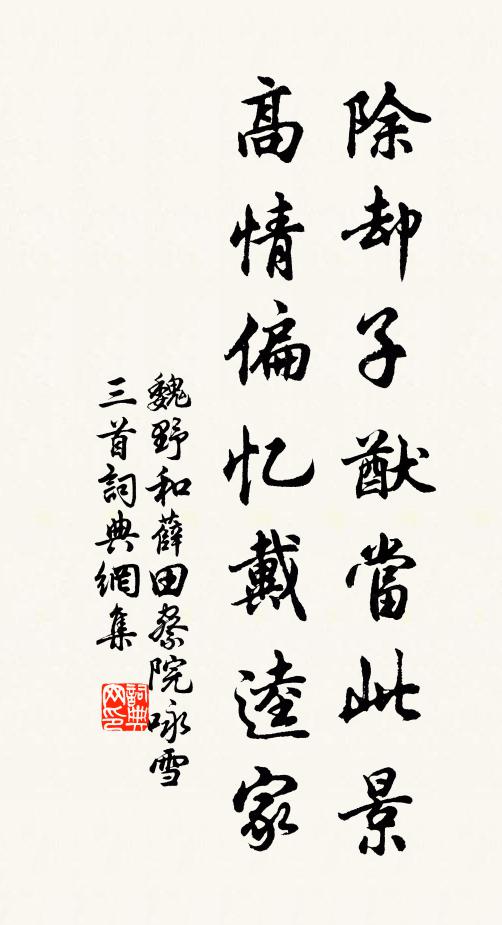 除却子猷當此景
高情偏忆戴逵家
魏野和薛田察院咏雪
三首詞典網集
詞典网印